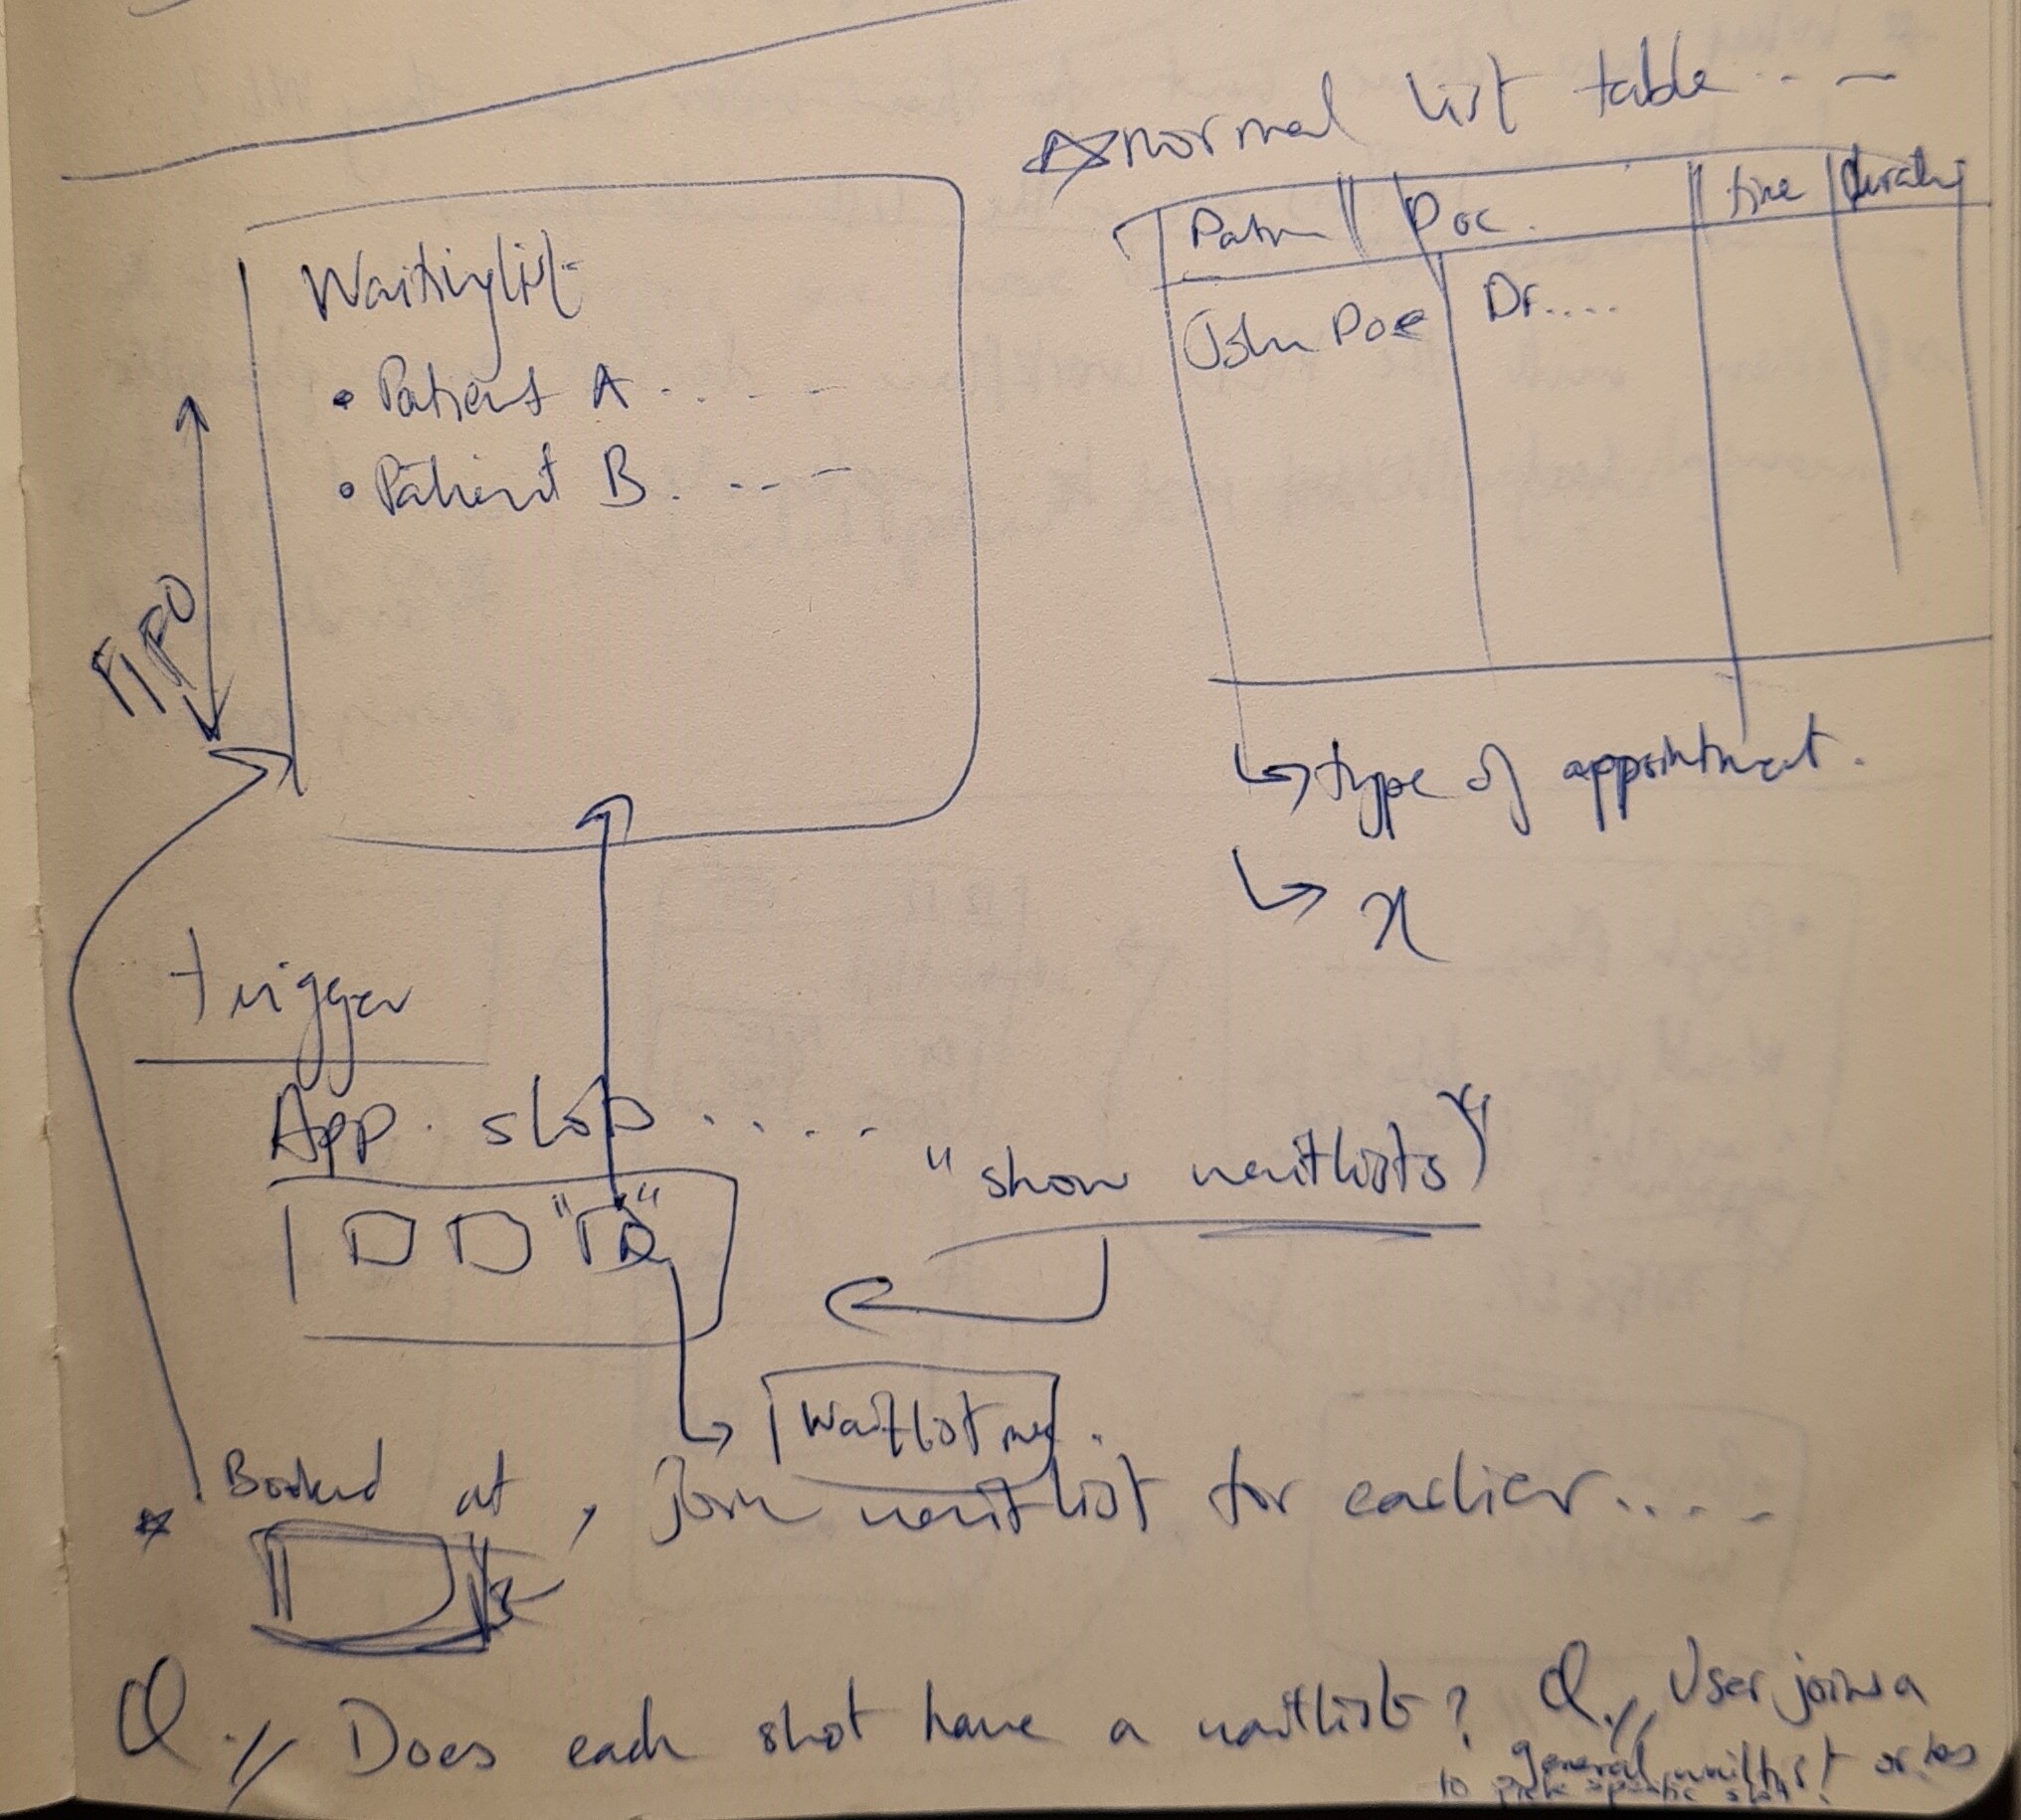 normal list table .. —
Doc. time
John Doe Dr....
Waitinglist
• Patient A . - . - -
• Patient B . - -- —
FIFO
→ type of appointment.
→ x
trigger
App. slots .....
"show waitlists"
Waitlist me.
* Booked at , Join waitlist for earlier....
Q.// Does each slot have a waitlist? Q.// User joins a
general waitlist or has
to pick specific slot?